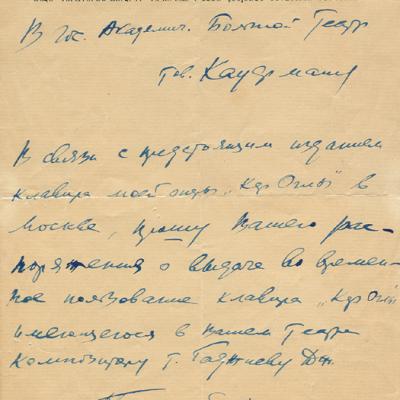 В Гос. Академич. Большой Театр
тов. Кауфману
В связи с предстоящим изданием
клавира моей оперы „Кёр Оглы" в
Москве, прошу Вашего рас-
поряжения о выдаче во времен-
ное пользование клавира „Кёр Оглы"
имеющегося в вашем Театре
Композитору т. Гаджиеву Дж.